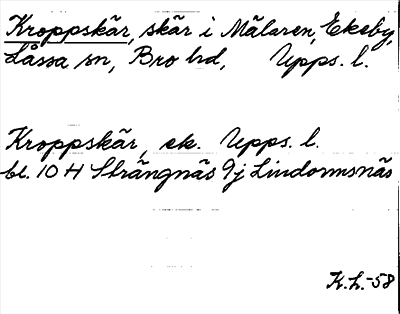 Kroppskär, skär i Mälaren, Ekeby,
Låssa sn, Bro hd, Upps. l.
Kroppskär, ek. Upps. l.
bl. 10 H Strängnäs 9j Lindormsnäs
K.h.-58